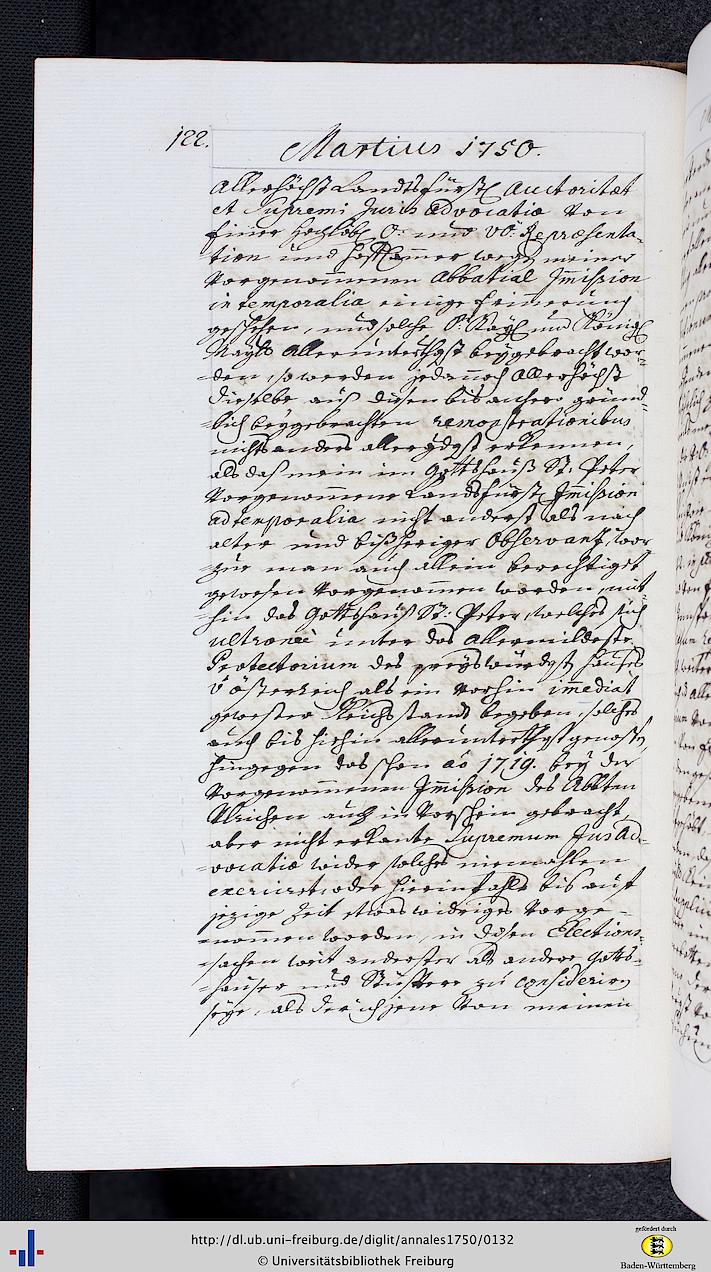 122.
Martius 1750.
allerhöchst Landtsfürstl. Auctoritæt
et Supremi Juris advocatiæ von
Einer Hochlöbl. O: und VÖ: Repræsenta-
tion und Hoffkammer wegen meiner
vorgenommenen Abbatial Immission
in temporalia einige Erinnerung
geschehen, und solche Kayl. und Königl.
Mayts allerunterthgst beygebracht wor-
den, so werden jedannoch allerhöchst
dieselbe auß disen bis anhero gründ-
lich beygebrachten remonstrationibus
nichts anders allergdgst erkennen,
als daß mein im Gottshauß St. Peter
vorgenommene Landtsfürstl. Immission
ad temporalia nicht anderst als nach
alter und bißheriger Observanz, wor-
zue man auch allein berechtiget
gewesen vorgenommen worden, mit-
hin das Gottshauß St. Peter, welches sich
ultroneè unter das allermildeste
Protectorium des preyswürdgsten Hauses
v Österreich als ein vorhin imediat
gewester Reichsstandt begeben, solches
auch bis hiehin allerunterthgst genossen,
hingegen das schon aõ 1719. bey der
vorgenommenen Immission des Abbten
Ulrichen auch in Vorschein gebracht,
aber nicht erkante Supremum Jus Ad-
vocatiæ wider solches niemahlen
exerciret, oder hierinfahls bis auff
jezige Zeit etwas widriges vorge-
nommen worden, in dessen Elections-
sachen weit anderster als andere Gotts-
häuser und Stüffter zu considerirn
seye, als der ich jene von meinen
http://dl.ub.uni-freiburg.de/diglit/annales1750/0132
© Universitätsbibliothek Freiburg
gefördert durch
Baden-Württemberg